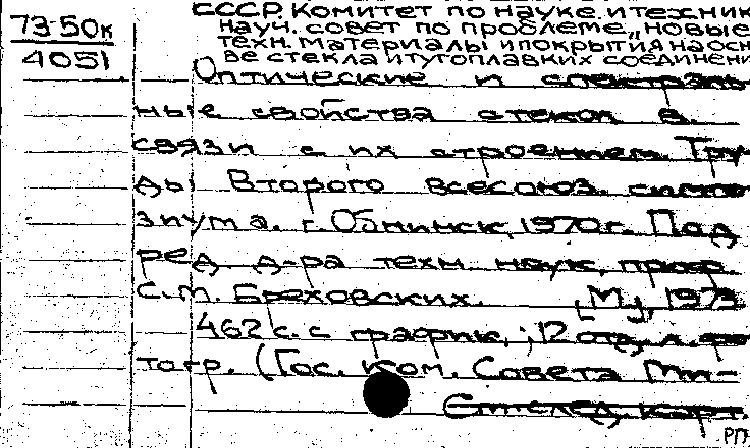 73-50к
4051
СССР. Комитет по науке и техник
науч. совет по проблеме „новые
техн. материалы и покрытия на осно
ве стекла и тугоплавких соединени
Оптические и спектраль
ные свойства стекол в
связи с их строением. Тру
ды Второго всесоюз. симпо
зиума. г. Обнинск, 1970г. Под
ред. д-ра техн. наук, проф.
С.М. Бреховских. [М.], 1973
462 с. с график.; 12 отд. л. фо
тогр. (Гос. ком. Совета Ми-
См. след. карт.
РП